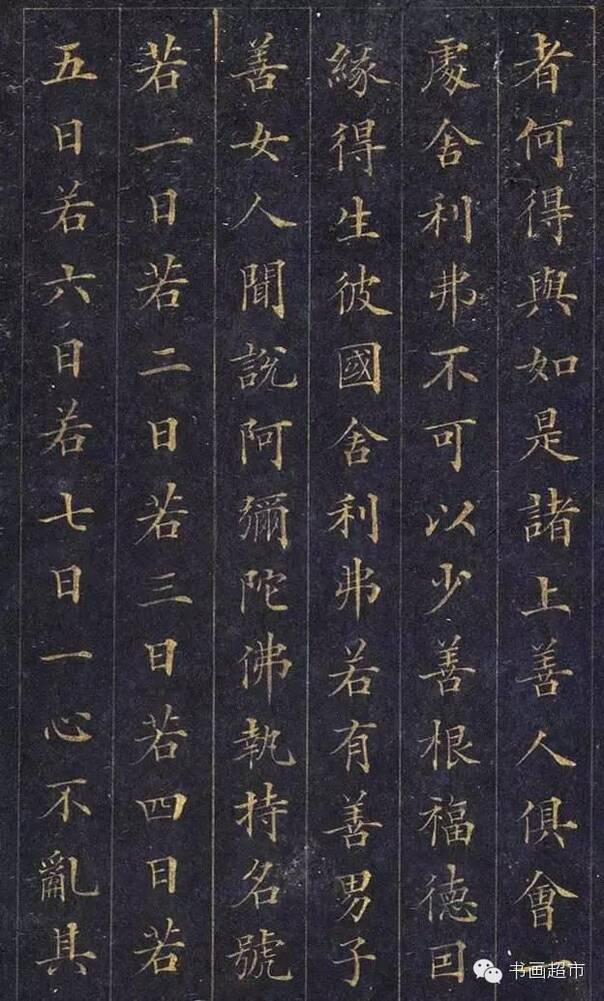 者何得與如是諸上善人俱會一
處舍利弗不可以少善根福德因
緣得生彼國舍利弗若有善男子
善女人聞說阿彌陀佛執持名號
若一日若二日若三日若四日若
五日若六日若七日一心不亂其
书画超市